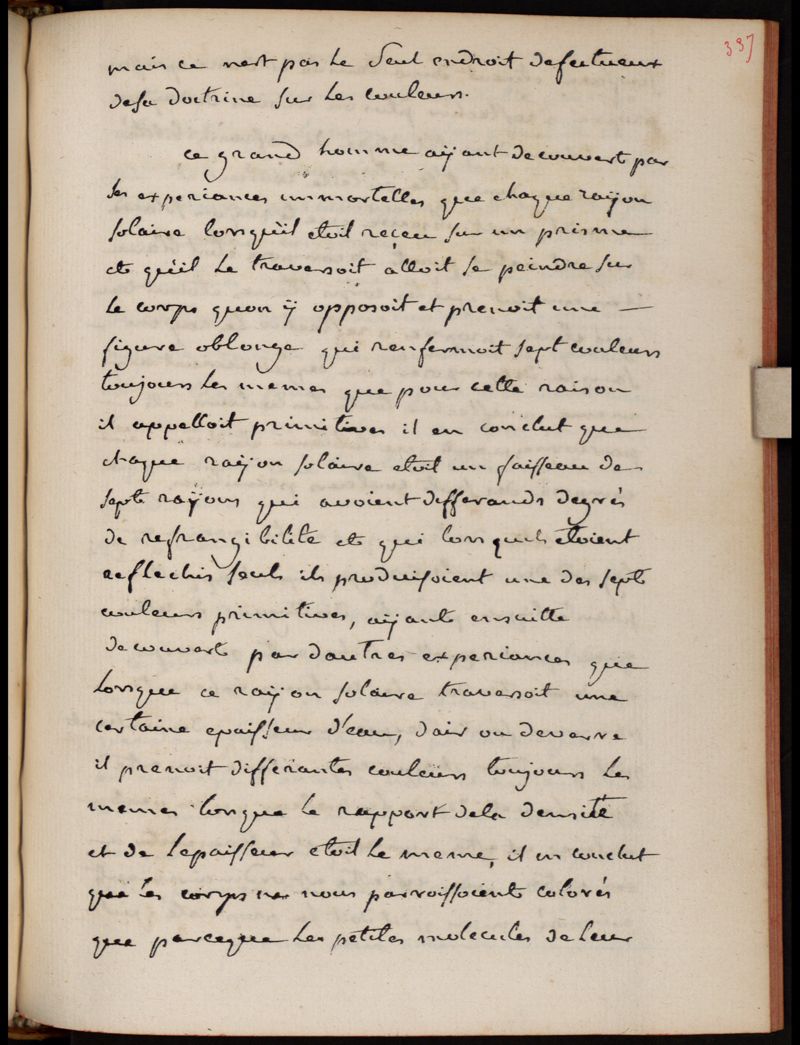 337
mais ce nest pas le seul endroit defectueux
desa doctrine sur les couleurs.
ce grand homme aÿant decouvert par
ses experiances immortelles que chaque raÿon
solaire lorsquëil etoit reçeu sur un prisme
et quëil le traversoit alloit se peindre sur
le corps quon ÿ opposoit et prenoit une —
figure oblonge qui renfermoit sept couleurs
toujours les memes que pour cette raison
il appelloit primitives il en conclut que
chaque raÿon solaire etoit un faisseau de
sept raÿons qui avoient differands degrés
de refrangibilité et qui lorsquels étoient
reflechis seuls ils produisoient une des sept
couleurs primitives, aÿant ensuitte
decouvert par dautres experiances que
lorsque ce raÿon solaire traversoit une
certaine epaisseur d'eau, dair ou deverre
il prenoit differantes couleurs toujours les
memes lorsque le rapport dela densité
et de lepaisseur etoit le meme, il en conclut
que les corps ne nous parroissoient colorés
que parceque les petites molecules de leur